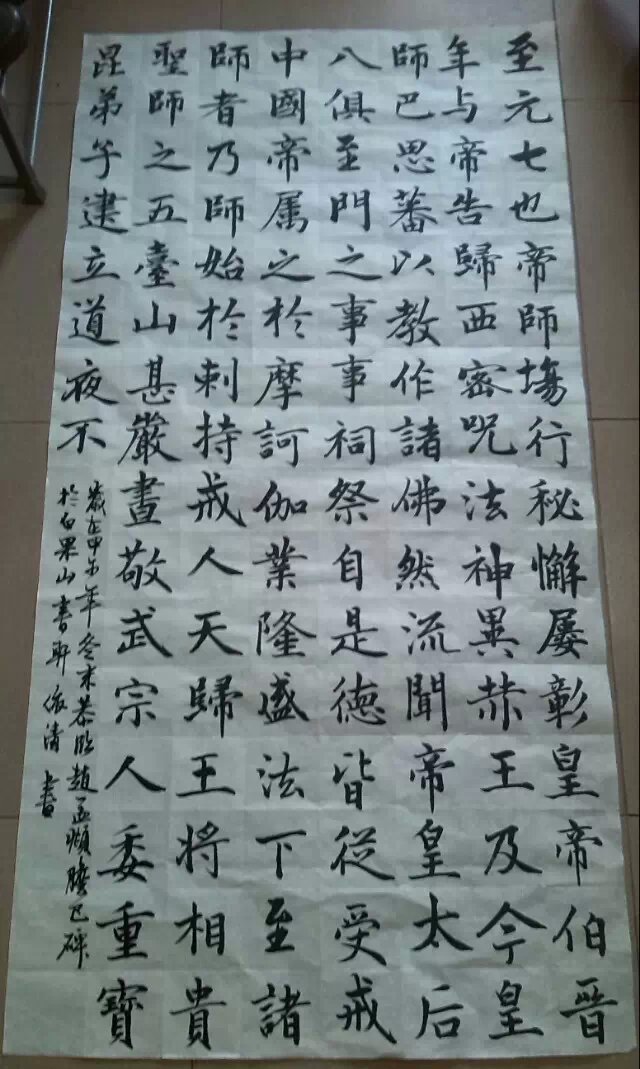 至元七也帝師塲行秘懈屡彰皇帝伯晋
年与帝告歸西密咒法神異赫王及今皇
師巴思蕃以教作諸佛然流聞帝皇太后
八俱至門之事事祠祭自是德皆從受戒
中國帝属之於摩訶伽業隆盛法下至諸
師者乃師始於刺持戒人天歸王將相貴
聖師之五臺山甚嚴晝敬武宗人委重寶
昆弟子建立道夜不
歲在甲午年冬末恭臨趙孟頫膽巴碑
於白果山書軒清書